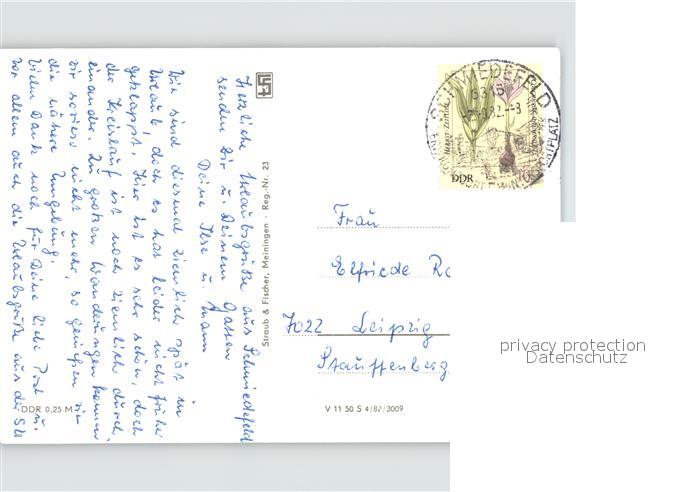 Herzliche Urlaubsgrüße aus Schmiedefeld
senden Dir u. Deinem Gatten
Deine Ilse u. Mann
Wir sind diesmal ziemlich spät in
Urlaub, doch es hat leider nicht früher
geklappt. Hier ist es sehr schön, doch
der Kreislauf ist noch ziemlich durch-
einander. Zu großen Wanderungen kommen
wir sowieso nicht mehr, so genießen wir
die nähere Umgebung.
Vielen Dank noch für Deine liebe Post u.
vor allem auch die Urlaubsgrüße aus der
DDR 0,25 M
Straub & Fischer, Meiningen · Reg.-Nr. 23
V 11 50 S 4/82/3009
SCHMIEDEFELD
DDR
10
Frau
Elfriede
7022 Leipzig
Stauffenberg
privacy protection
Datenschutz